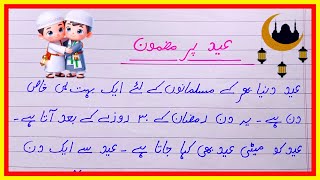 عید پر مضمون
عید دنیا بھر کے مسلمانوں کے لئے ایک بہت ہی خاص
دن ہے۔ یہ دن رمضان کے ۳۰ روزے کے بعد آتا ہے۔
عید کو میٹھی عید بھی کہا جاتا ہے۔ عید سے ایک دن